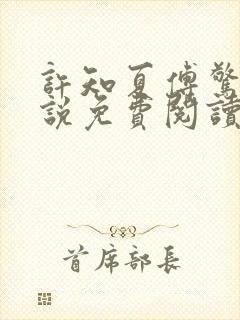 許知夏傅驚
說免費閱讀
首席部長